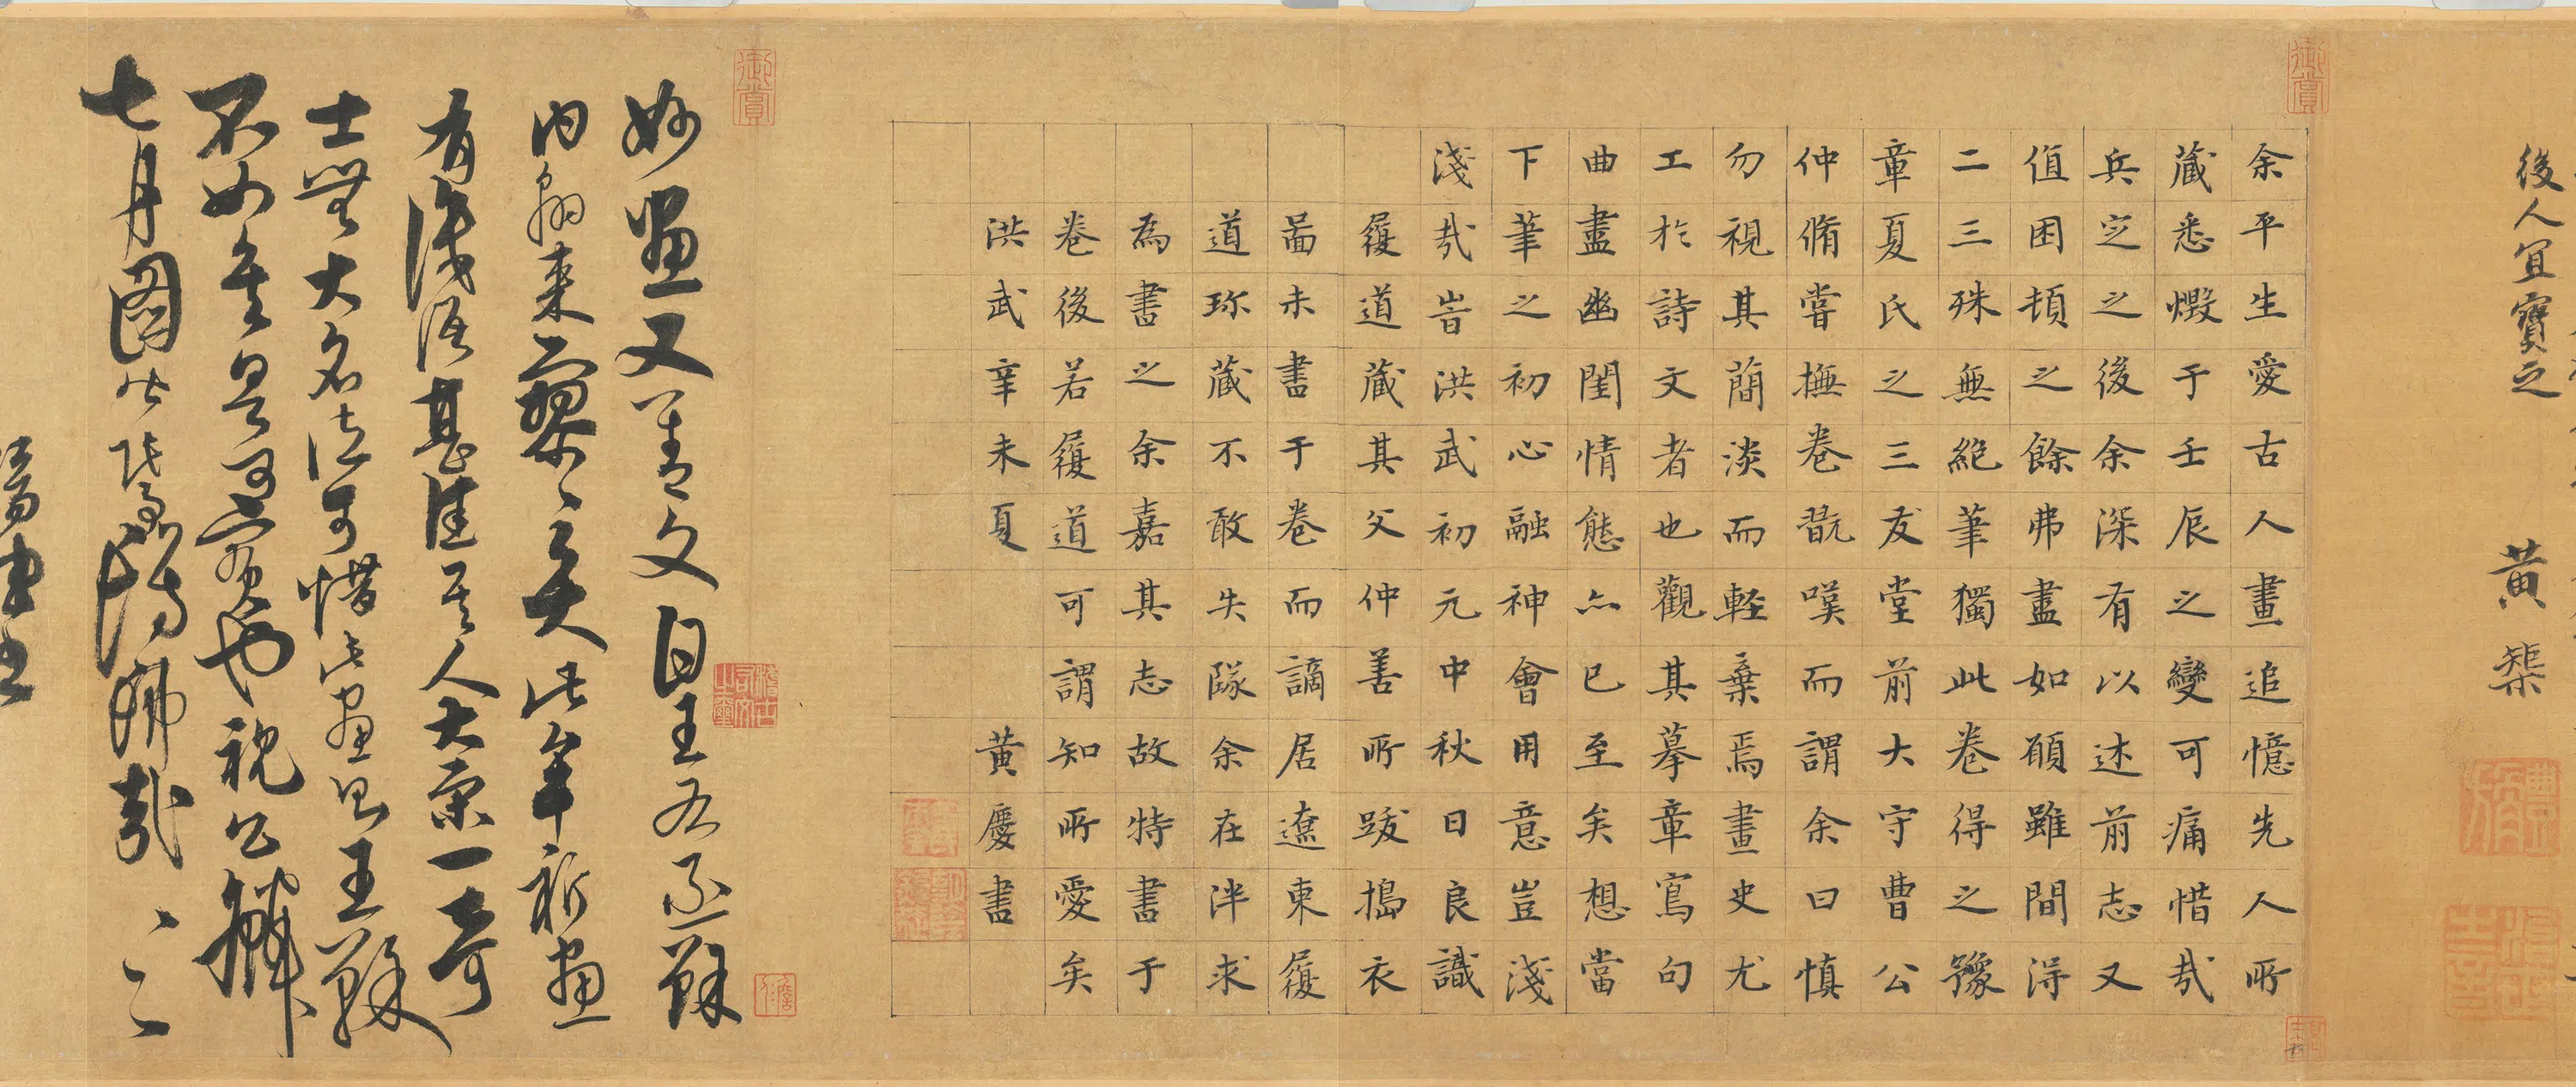 後人宜寶之 黃榘
余平生愛古人畫追憶先人所
藏悉燬于壬辰之變可痛惜哉
兵定之後余深有以述前志又
值困頓之餘弗盡如願雖間得
二三殊無絕筆獨此卷得之豫
章夏氏之三友堂前大守曹公
仲脩嘗撫卷翫嘆而謂余曰慎
勿視其蕳淡而輕棄焉畫史尤
工於詩文者也觀其摹章寫句
曲盡幽閨情態亦已至矣想當
下筆之初心融神會用意豈淺
淺哉旹洪武初元中秋日良識
履道藏其父仲善所跋搗衣
啚未書于卷而謫居遼東履
道珎藏不敢失隊余在泮求
為書之余嘉其志故特書于
卷後若履道可謂知所愛矣
洪武辛未夏 黃慶書
妙畫又善文自王右丞蘇
內翰來寥寥矣此牟祈畫
有淺語甚佳其人大一奇
士無大名信可惜此畫與王蘇
不必是可寶也祝公
七月圖此哉